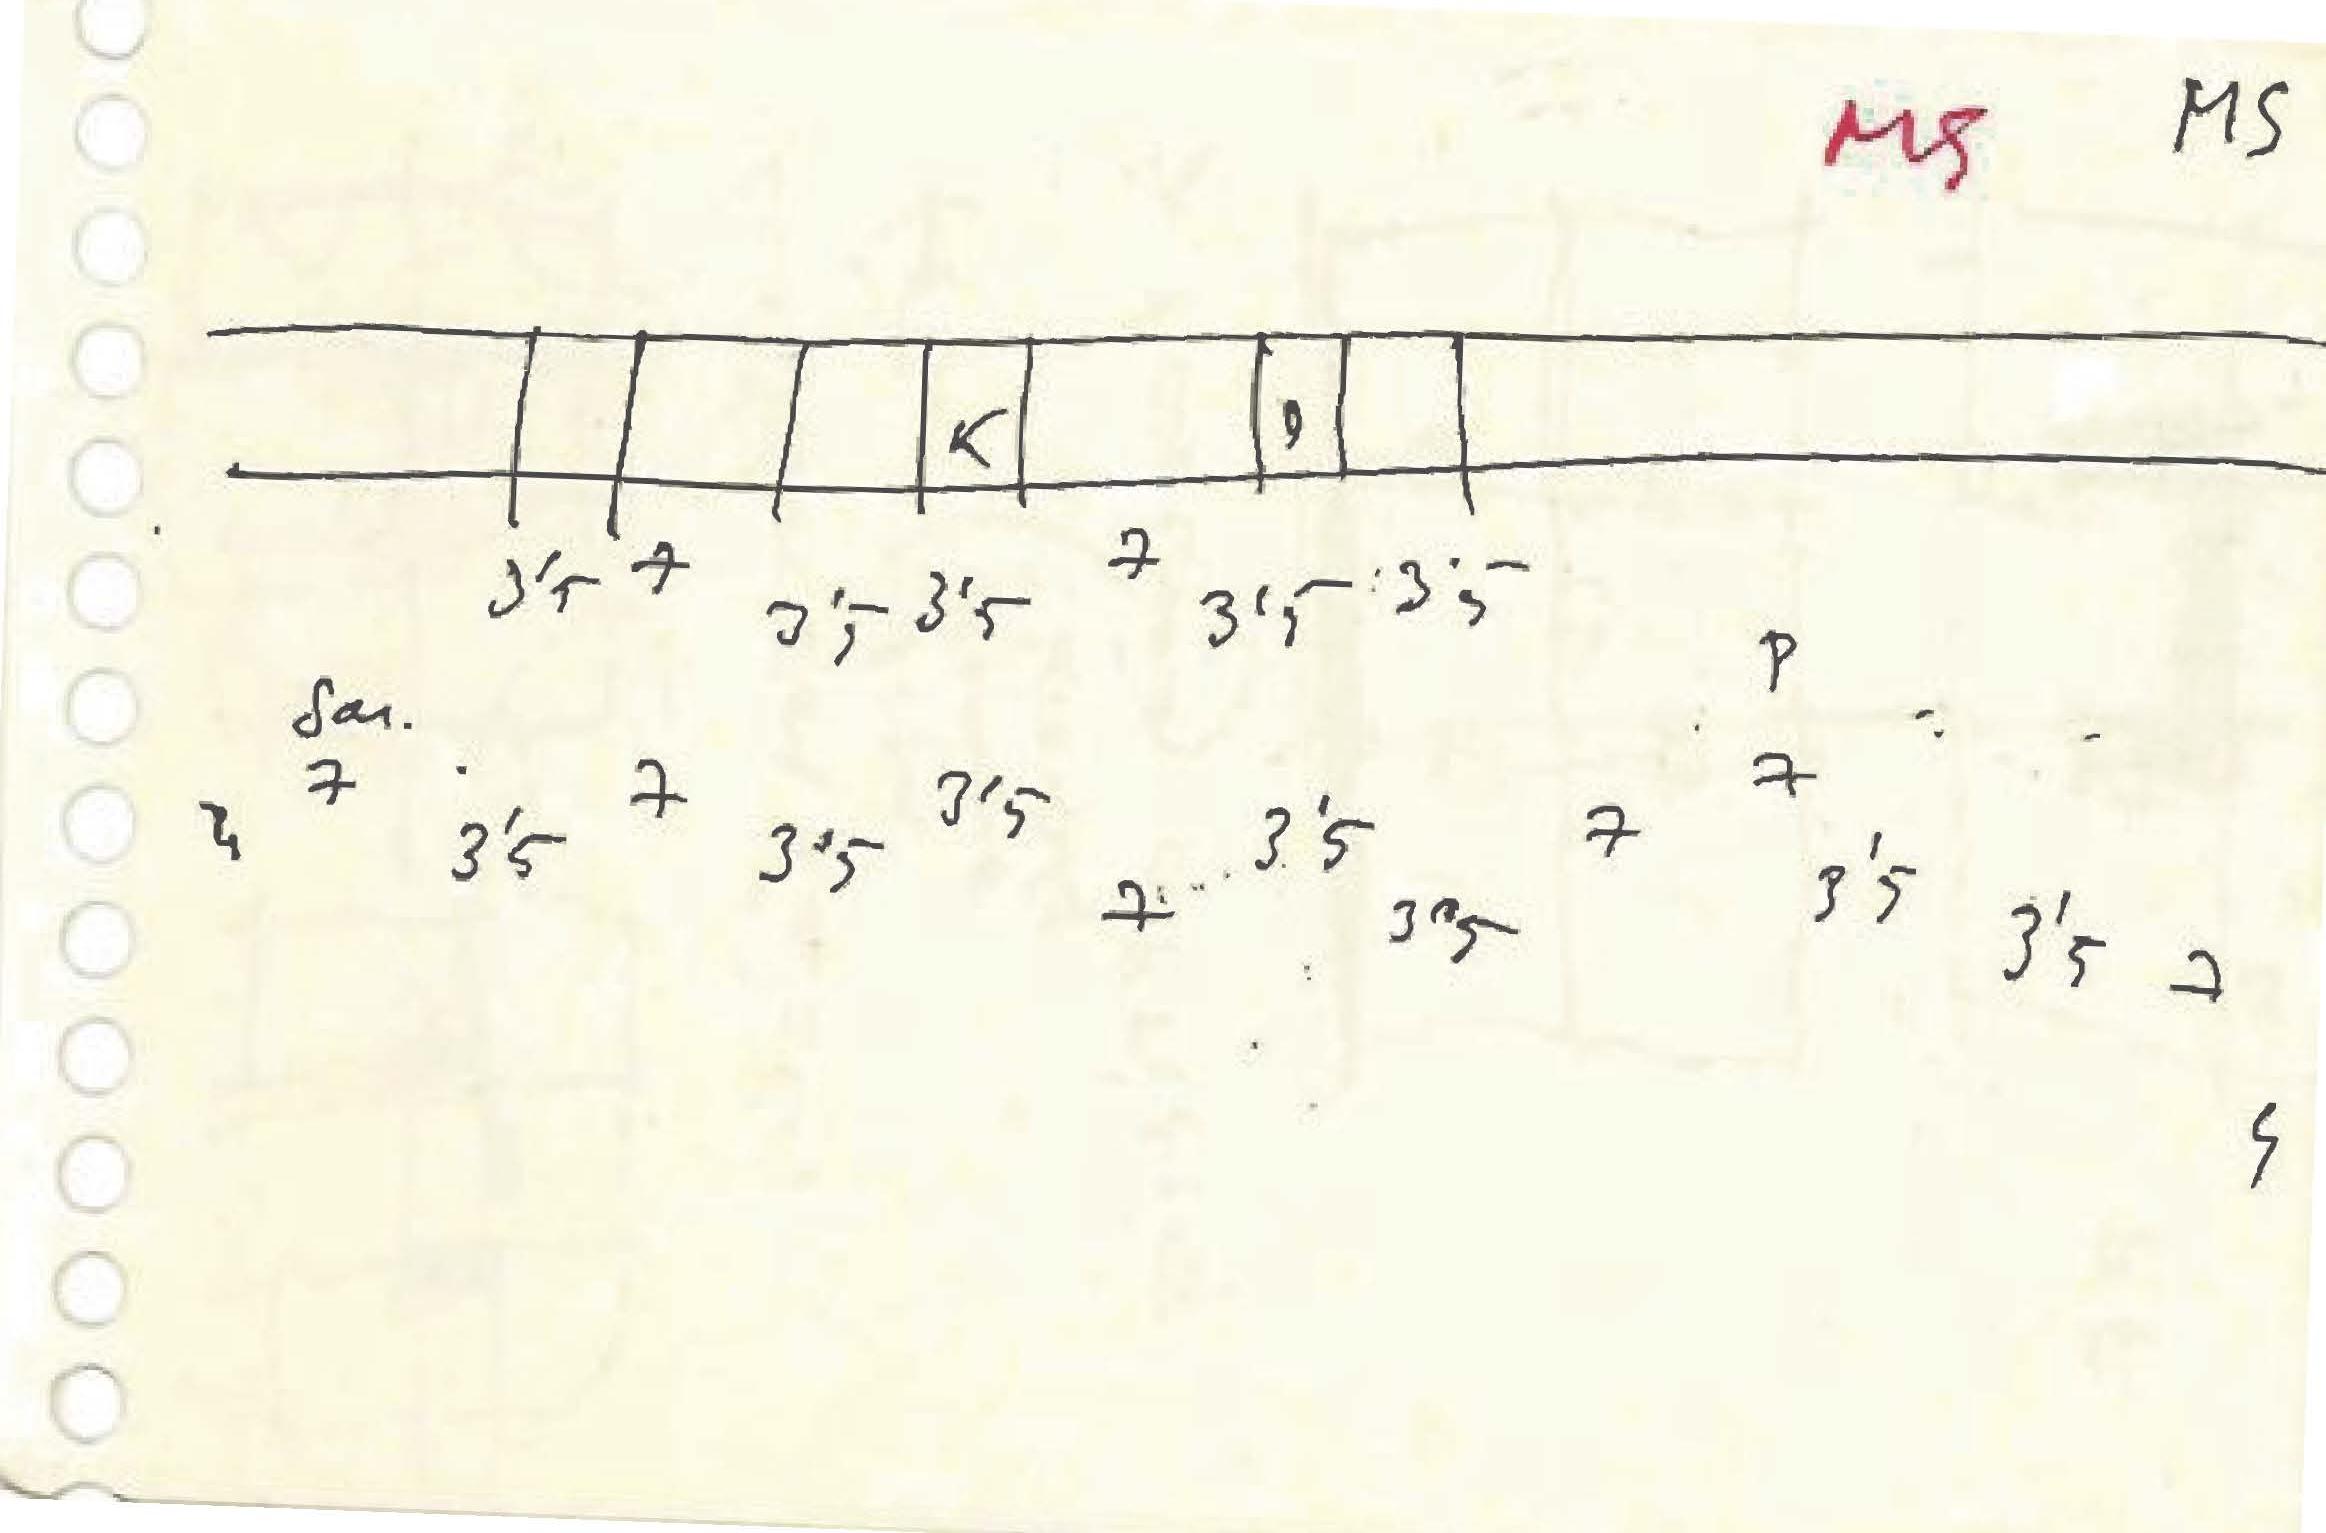 MS MS
K
3'5 7 3'5 3'5 7 3'5 3'5
P
San.
7 3'5 7 3'5 3'5 7 3'5 3'5 7 7 3'5 3'5 7